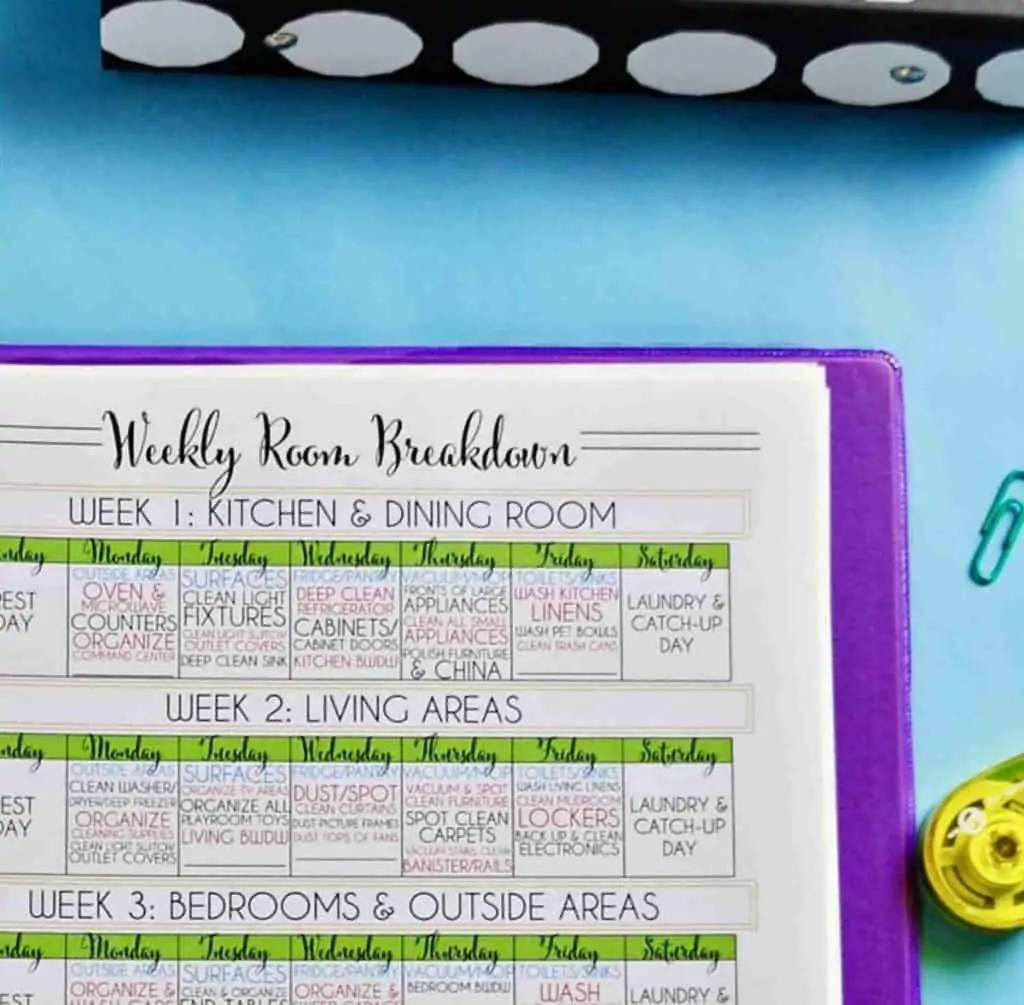 Weekly Room Breakdown
WEEK 1: KITCHEN & DINING ROOM
nday Monday Tuesday Wednesday Thursday Friday Saturday
EST
AY
OUTSIDE AREAS
OVEN &
MICROWAVE
COUNTERS
ORGANIZE
COMMAND CENTER
SURFACES
CLEAN LIGHT
FIXTURES
CLEAN LIGHT SWITCH/
OUTLET COVERS
DEEP CLEAN SINK
FRIDGE/PANTRY
DEEP CLEAN
REFRIGERATOR
CABINETS/
CABINET DOORS
KITCHEN BWDW
VACUUM/MOP
FRONTS OF LARGE
APPLIANCES
CLEAN ALL SMALL
APPLIANCES
POLISH FURNITURE
& CHINA
TOILETS/SINKS
WASH KITCHEN
LINENS
WASH PET BOWLS
CLEAN TRASH CANS
LAUNDRY &
CATCH-UP
DAY
WEEK 2: LIVING AREAS
nday Monday Tuesday Wednesday Thursday Friday Saturday
EST
AY
OUTSIDE AREAS
CLEAN WASHER/
DRYER/DEEP FREEZER
ORGANIZE
CLEANING SUPPLIES
CLEAN LIGHT SWITCH/
OUTLET COVERS
SURFACES
ORGANIZE TV AREAS
ORGANIZE ALL
PLAYROOM TOYS
LIVING BWDW
FRIDGE/PANTRY
DUST/SPOT
CLEAN CURTAINS
DUST PICTURE FRAMES
DUST TOPS OF FANS
VACUUM/MOP
VACUUM & SPOT
CLEAN FURNITURE
SPOT CLEAN
CARPETS
VACUUM STAIRS, CLEAN
BANISTER/RAILS
TOILETS/SINKS
WASH LIVING LINENS
CLEAN MUDROOM
LOCKERS
BACK UP & CLEAN
ELECTRONICS
LAUNDRY &
CATCH-UP
DAY
WEEK 3: BEDROOMS & OUTSIDE AREAS
nday Monday Tuesday Wednesday Thursday Friday Saturday
EST
OUTSIDE AREAS
ORGANIZE &
SURFACES
CLEAN & ORGANIZE
END TABLES
FRIDGE/PANTRY
ORGANIZE &
VACUUM/MOP
BEDROOM BWDW
TOILETS/SINKS
WASH
LAUNDRY &